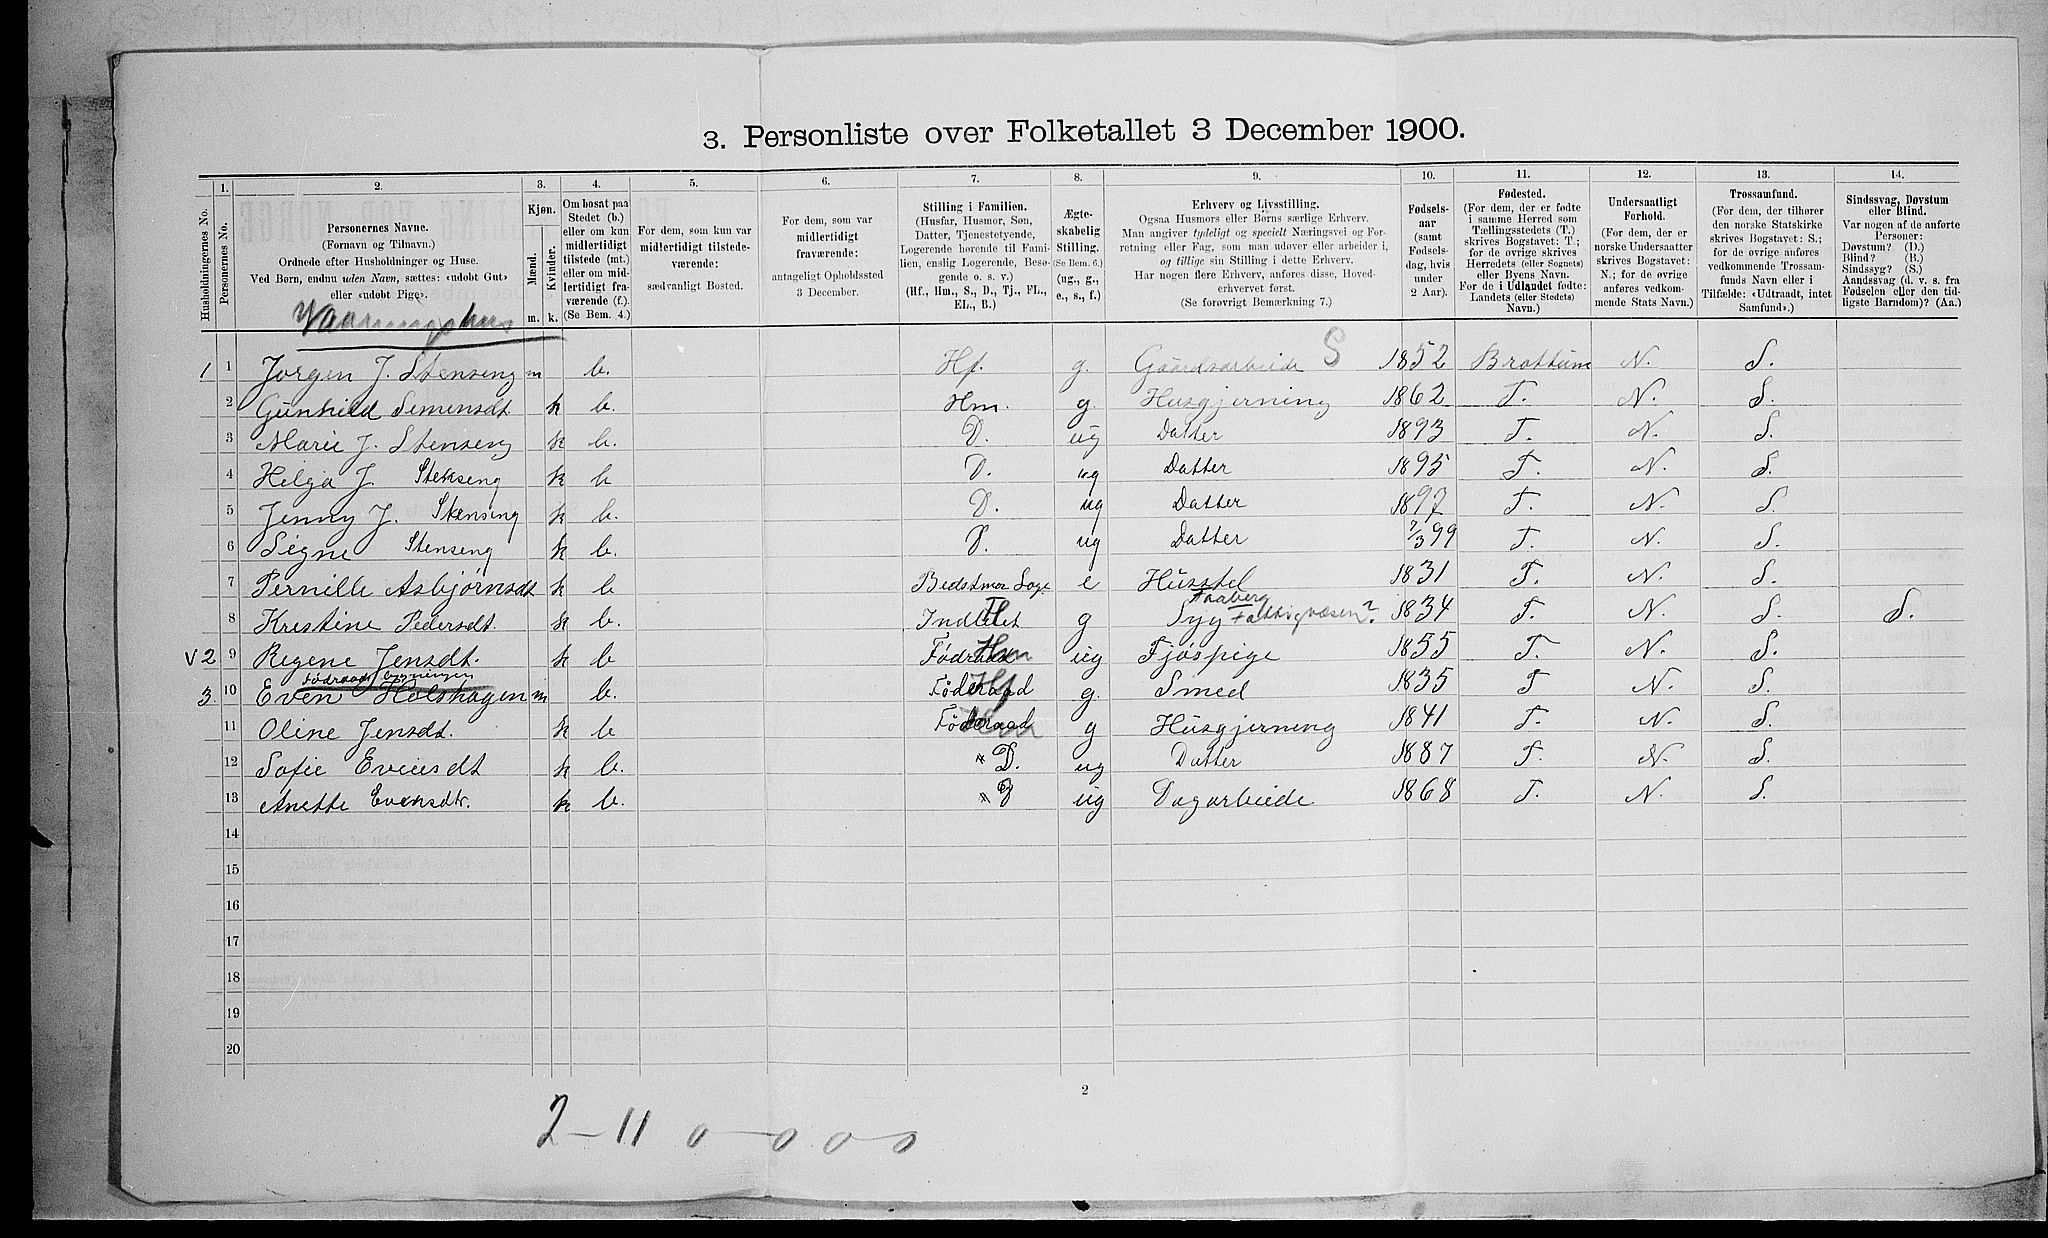 3. Personliste over Folketallet 3 December 1900.
Husholdningernes No.
1.
Personernes No.
2.
Personernes Navne.
(Fornavn og Tilnavn.)
Ordnede efter Husholdninger og Huse.
Ved Børn, endnu uden Navn, sættes: «udøbt Gut»
eller «udøbt Pige».
3.
Kjøn.
Mænd.
Kvinder.
m. k.
4.
Om bosat paa
Stedet (b.)
eller om kun
midlertidigt
tilstede (mt.)
eller om mid-
lertidigt fra-
værende (f.)
(Se Bem. 4.)
5.
For dem, som kun var
midlertidigt tilstede-
værende:
sædvanligt Bosted.
6.
For dem, som var
midlertidigt
fraværende:
antageligt Opholdssted
3 December.
7.
Stilling i Familien.
(Husfar, Husmor, Søn,
Datter, Tjenestetyende,
Logerende hørende til Fami-
lien, enslig Logerende, Besø-
gende o. s. v.)
(Hf., Hm., S., D., Tj., FL.,
EL., B.)
8.
Ægte-
skabelig
Stilling.
(Se Bem. 6.)
(ug., g.,
e., s., f.)
9.
Erhverv og Livsstilling.
Ogsaa Husmors eller Børns særlige Erhverv.
Man angiver tydeligt og specielt Næringsvei og For-
retning eller Fag, som man udøver eller arbeider i,
og tillige sin Stilling i dette Erhverv.
Har nogen flere Erhverv, anføres disse, Hoved-
erhvervet først.
(Se forøvrigt Bemærkning 7.)
10.
Fødsels-
aar
(samt
Fødsels-
dag, hvis
under
2 Aar).
11.
Fødested.
(For dem, der er fødte
i samme Herred som
Tællingsstedets (T.)
skrives Bogstavet: T.;
for de øvrige skrives
Herredets (eller Sognets)
eller Byens Navn.
For de i Udlandet fødte:
Landets (eller Stedets)
Navn.)
12.
Undersaatligt
Forhold.
(For dem, der er
norske Undersaatter
skrives Bogstavet:
N.; for de øvrige
anføres vedkom-
mende Stats Navn.)
13.
Trossamfund.
(For dem, der tilhører
den norske Statskirke
skrives Bogstavet: S.;
for de øvrige anføres
vedkommende Trossam-
funds Navn eller i
Tilfælde: «Udtraadt, intet
Samfund».)
14.
Sindssvag, Døvstum
eller Blind.
Var nogen af de anførte
Personer:
Døvstum? (D.)
Blind? (B.)
Sindssyg? (S.)
Aandssvag (d. v. s. fra
Fødselen eller den tid-
ligste Barndom)? (Aa.)
Vaaningshus
1 1 Jørgen J. Stenseng m b. Hf. g. Gaardsarbeide S 1852 Brøttum N. S.
2 Gunhild Simensdt k b. Hm. g. Husgjerning 1862 T. N. S.
3 Marie J. Stenseng k b. D. ug Datter 1893 T. N. S.
4 Helga J. Stenseng k b D. ug Datter 1895 T. N. S.
5 Jenny J. Stenseng k b. D. ug Datter 1897 T. N. S.
6 Signe Stenseng k b. D. ug Datter 7/3 99 T. N. S.
7 Pernille Asbjørnsdt k b Bedstmor Loge e Husstel 1831 T. N. S.
Faaberg
8 Kristine Pedersdt. k b. Indlet g Syg Fattigvæsen? 1834 T. N. S. S.
V 2 9 Regene Jensdt. k b Fødraad Hm ug Fjøspige 1855 T. N. S.
Fødraadsbygningen
3. 10 Even Holshagen m b. Føderaad Hf g. Smed 1835 T N. S.
11 Oline Jensdt. k b Føderaad g Husgjerning 1841 T. N. S.
12 Sofie Evensdt k b. " D. ug Datter 1887 T. N. S.
13 Anette Evensdtr. k b. " D ug Dagarbeide 1868 T. N. S.
14
15
16
17
18
19
20
2
2 – 11 0 – 0 0 – 0